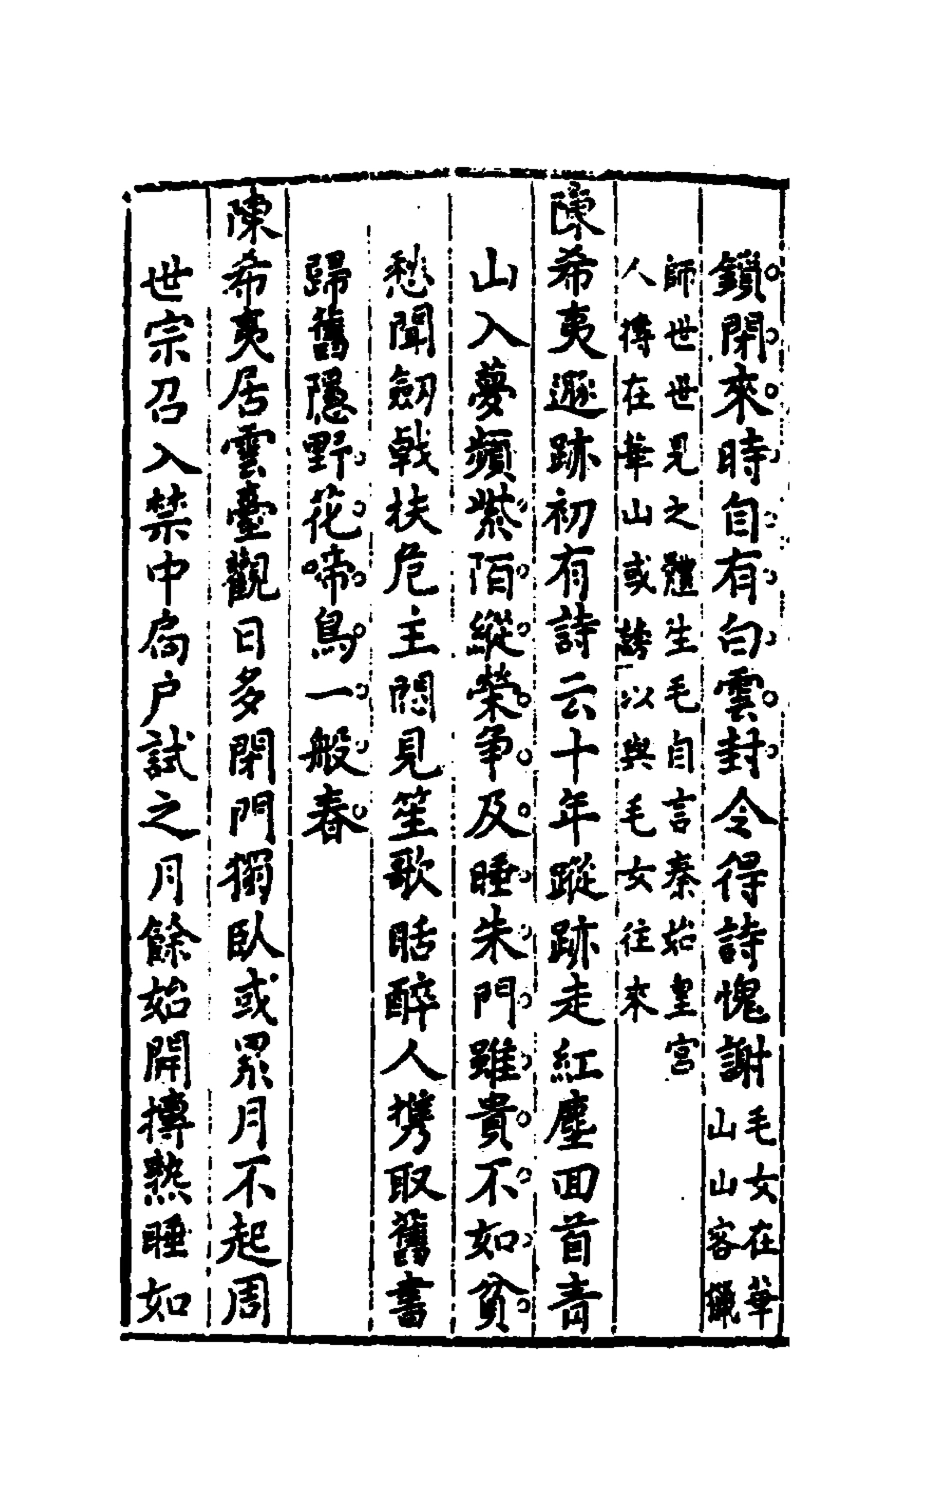 鎖閉來時自有白雲封令得詩愧謝毛女在華
山山容獵
師世世見之體生毛自言秦始皇宮
人傳在華山或誇以與毛女往來
陳希夷遯跡初有詩云十年蹤跡走紅塵囬首青
山入夢頻紫陌縱榮争及睡朱門雖貴不如貧
愁聞劔戟扶危主悶見笙歌聒醉人携取舊書
歸舊隱野花啼鳥一般春
陳希夷居雲臺觀日多閉門獨臥或累月不起周
世宗召入禁中扃户試之月餘始開摶熟睡如